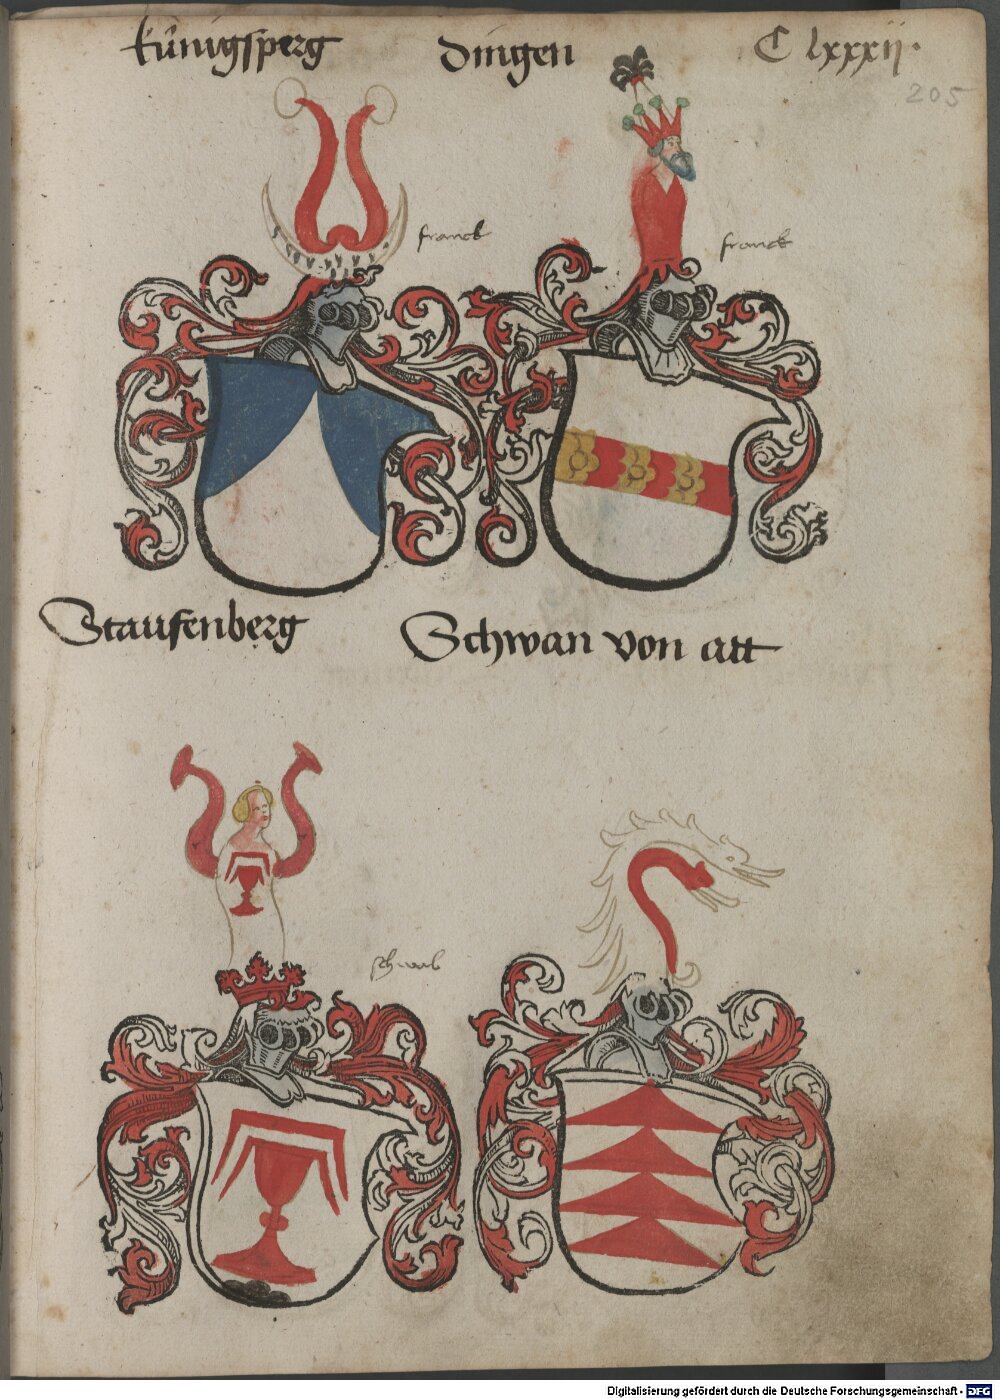 kůnigsperg dingen C lxxxij.
205
franck franck
Staufenberg Schwan von att
schwab
Digitalisierung gefördert durch die Deutsche Forschungsgemeinschaft - DFG